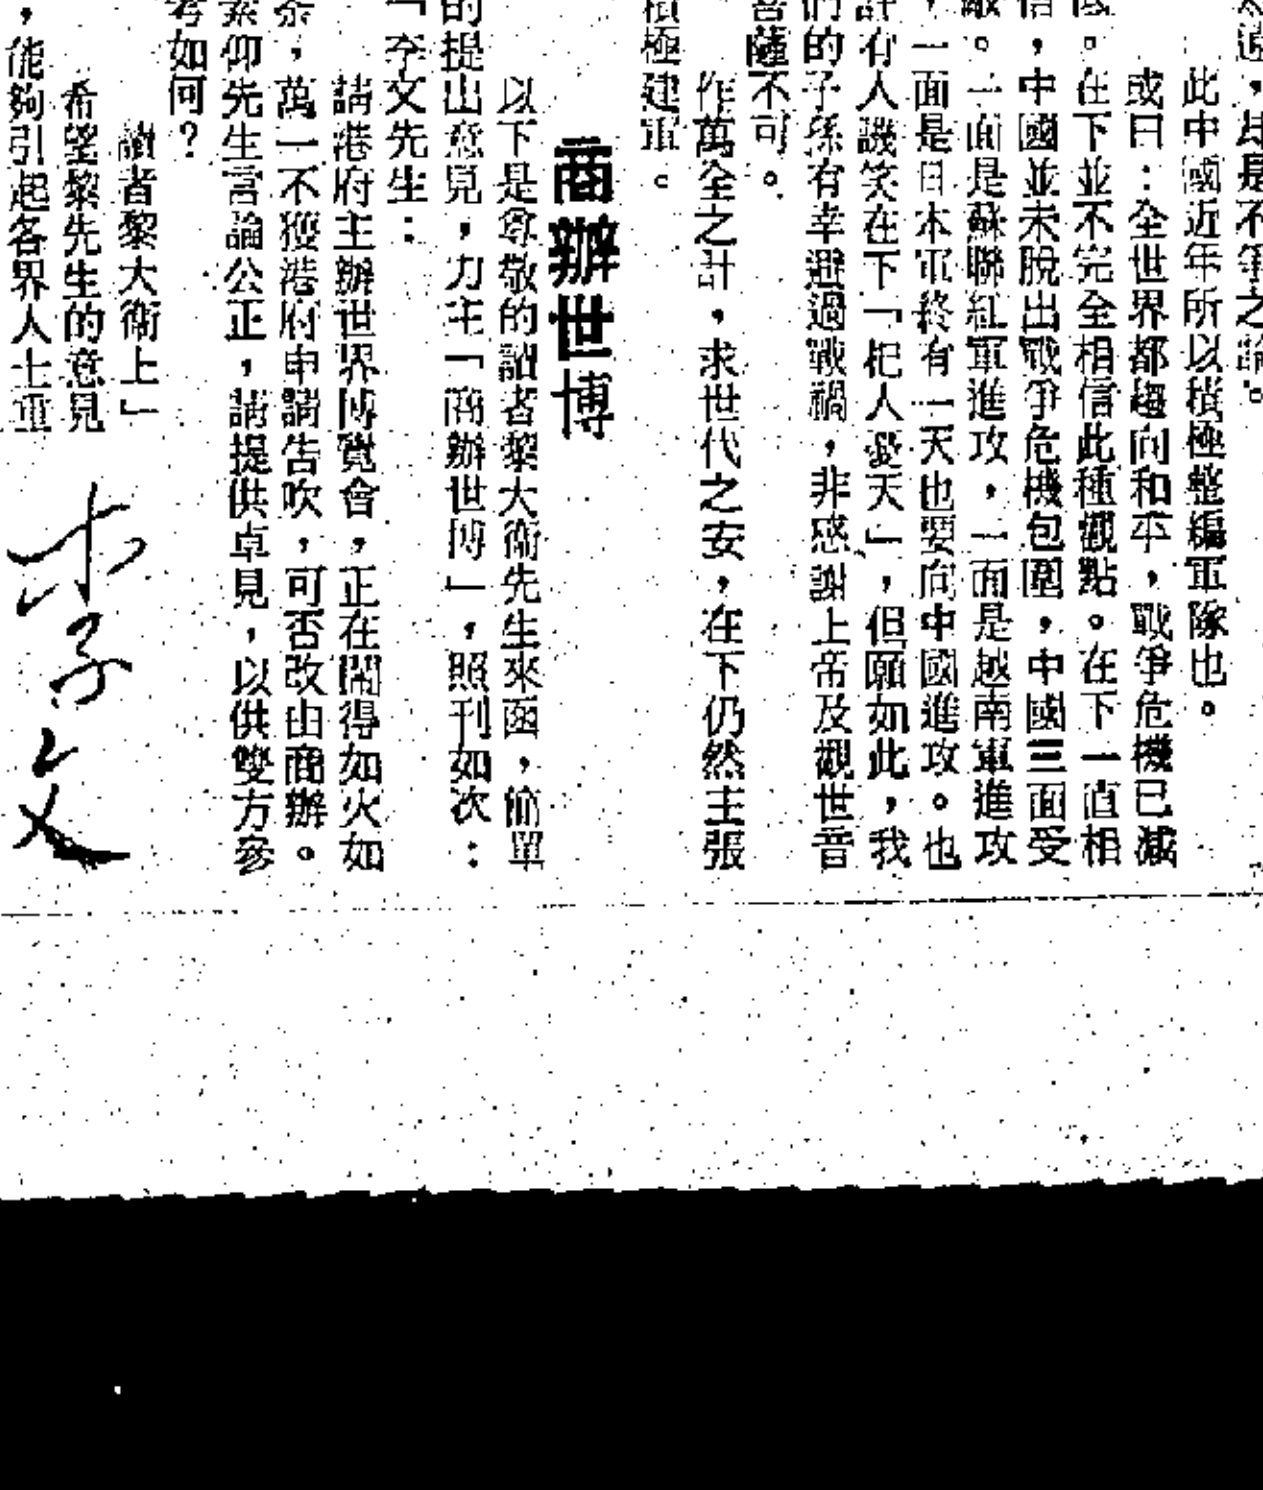 遠，是不爭之論。
此中國近年所以積極整編軍隊也。
或曰：全世界都趨向和平，戰爭危機已減
低。在下並不完全相信此種觀點。在下一直相
信，中國並未脫出戰爭危機包圍，中國三面受
敵。一面是蘇聯紅軍進攻，一面是越南軍進攻
，一面是日本軍終有一天也要向中國進攻。也
許有人譏笑在下「杞人憂天」，但願如此，我
們的子孫有幸避過戰禍，非感謝上帝及觀世音
菩薩不可。
作萬全之計，求世代之安，在下仍然主張
積極建軍。
商辦世博
以下是尊敬的讀者黎大衛先生來函，簡單
的提出意見，力主「商辦世博」，照刊如次：
「李文先生：
請港府主辦世界博覽會，正在鬧得如火如
荼，萬一不獲港府申請告吹，可否改由商辦。
素仰先生言論公正，請提供卓見，以供雙方參
考如何？
讀者黎大衛上」
希望黎先生的意見
，能夠引起各界人士重
李文